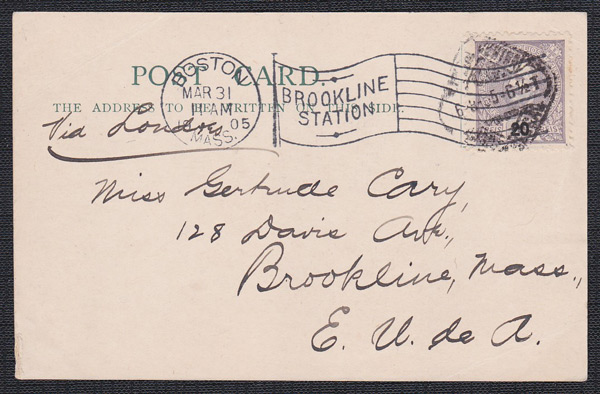 POST CARD.
THE ADDRESS TO BE WRITTEN ON THIS SIDE.
BOSTON
MAR 31
AM
05
MASS.
BROOKLINE
STATION
20
Via London
Miss Gertrude Cary,
128 Davis Ave.,
Brookline, Mass.,
E. U. de A.